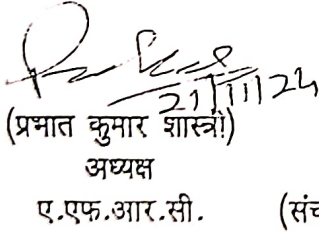 21/11/24
(प्रभात कुमार शास्त्री)
अध्यक्ष
ए.एफ.आर.सी. (संच